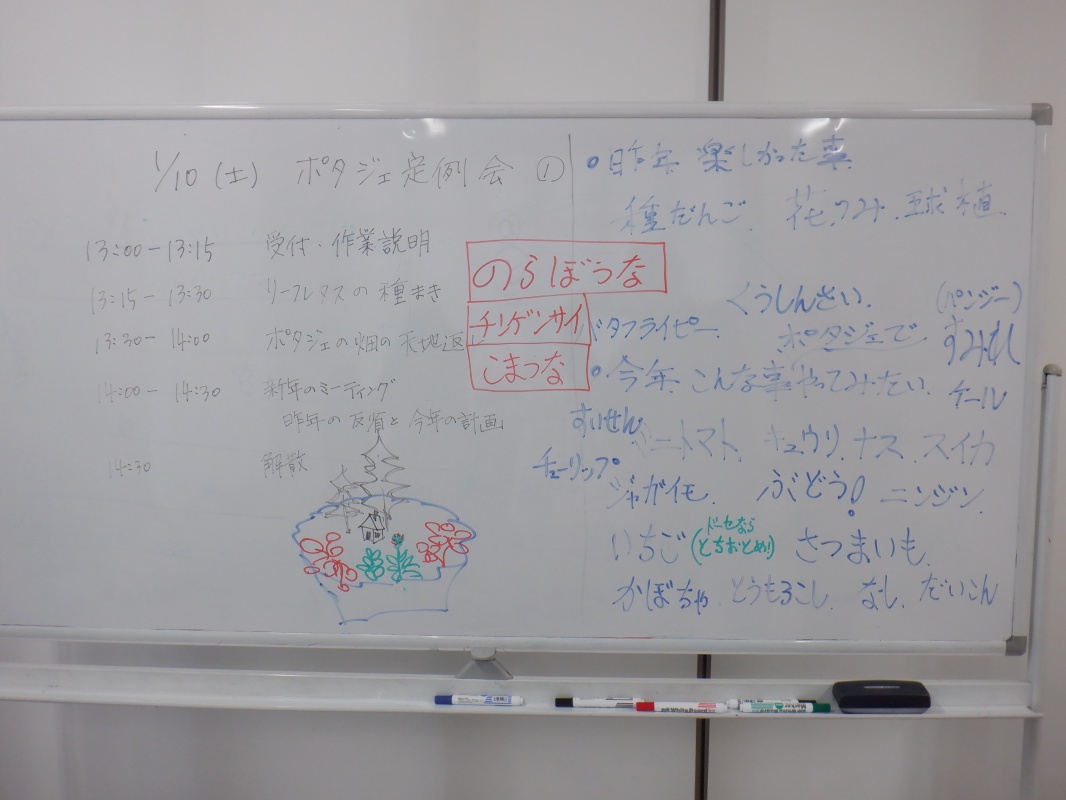 1/10 (土) ポタジェ定例会 ①
13:00 - 13:15 受付・作業説明
13:15 - 13:30 リーフレタスの種まき
13:30 - 14:00 ポタジェの畑の天地返
14:00 - 14:30 新年のミーティング
昨年の反省と今年の計画
14:30 解散
のらぼうな
チリゲンサイ
こまつな
・昨年 楽しかった事
種だんご、花つみ、球植
くうしんさい、
(パンジー)
バタフライピー、
ポタジェで
すみれ
・今年、こんな事やってみたい、
ケール
すいせん
ミニトマト、キュウリ、ナス、スイカ
チューリップ
ジャガイモ、ぶどう! ニンジン、
いちご (ドーセなら とちおとめ!) さつまいも、
かぼちゃ、とうもろこし、なし、だいこん